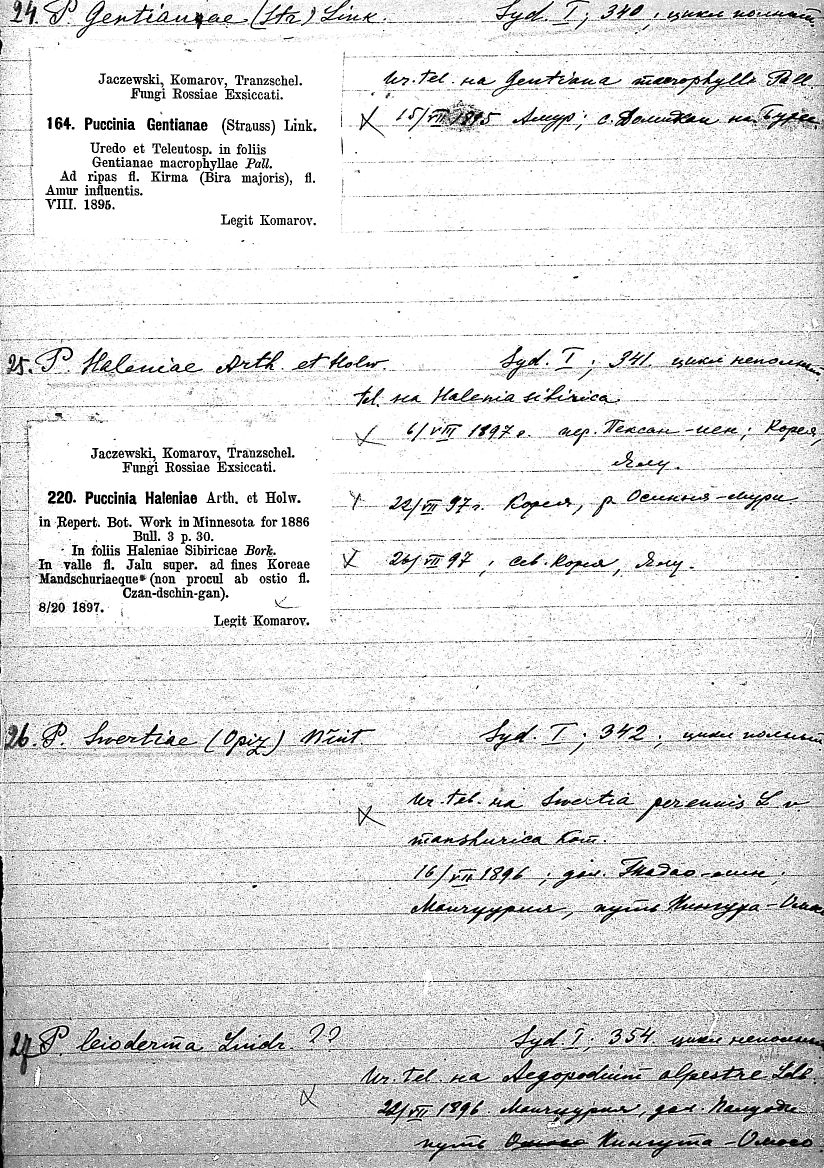 24. P. Gentianae (Str) Link. Syd. I; 340; цикл полный
Ur. tel. на Gentiana macrophylla Pall.
15/VII 1895 Амур; с.
Jaczewski, Komarov, Tranzschel.
Fungi Rossiae Exsiccati.
164. Puccinia Gentianae (Strauss) Link.
Uredo et Teleutosp. in foliis
Gentianae macrophyllae Pall.
Ad ripas fl. Kirma (Bira majoris), fl.
Amur influentis.
VIII. 1895.
Legit Komarov.
25. P. Haleniae Arth. et Holw. Syd. I; 341. цикл неполный
tel. на Halenia sibirica.
6/VII 1897 г. пер. Корея,
Ялу.
22/VII 97 г. Корея, р.
26/VII 97; сев. Корея, Ялу.
Jaczewski, Komarov, Tranzschel.
Fungi Rossiae Exsiccati.
220. Puccinia Haleniae Arth. et Holw.
in Repert. Bot. Work in Minnesota for 1886
Bull. 3 p. 30.
In foliis Haleniae Sibiricae Bork.
In valle fl. Jalu super. ad fines Koreae
Mandschuriaeque (non procul ab ostio fl.
Czan-dschin-gan).
8/20 1897.
Legit Komarov.
26. P. Swertiae (Opiz) Wint. Syd. I; 342; цикл полный
Ur. tel. на Swertia perennis L. v
manshurica Kom.
16/VII 1896; дол.
Манчурия, путь
27 P. leioderma Lindr. ?? Syd I; 354 цикл неполный
Ur. tel. на Aegopodium alpestre Ldb.
22/VII 1896 Манчурия, дол.
путь Нингута - Омосо